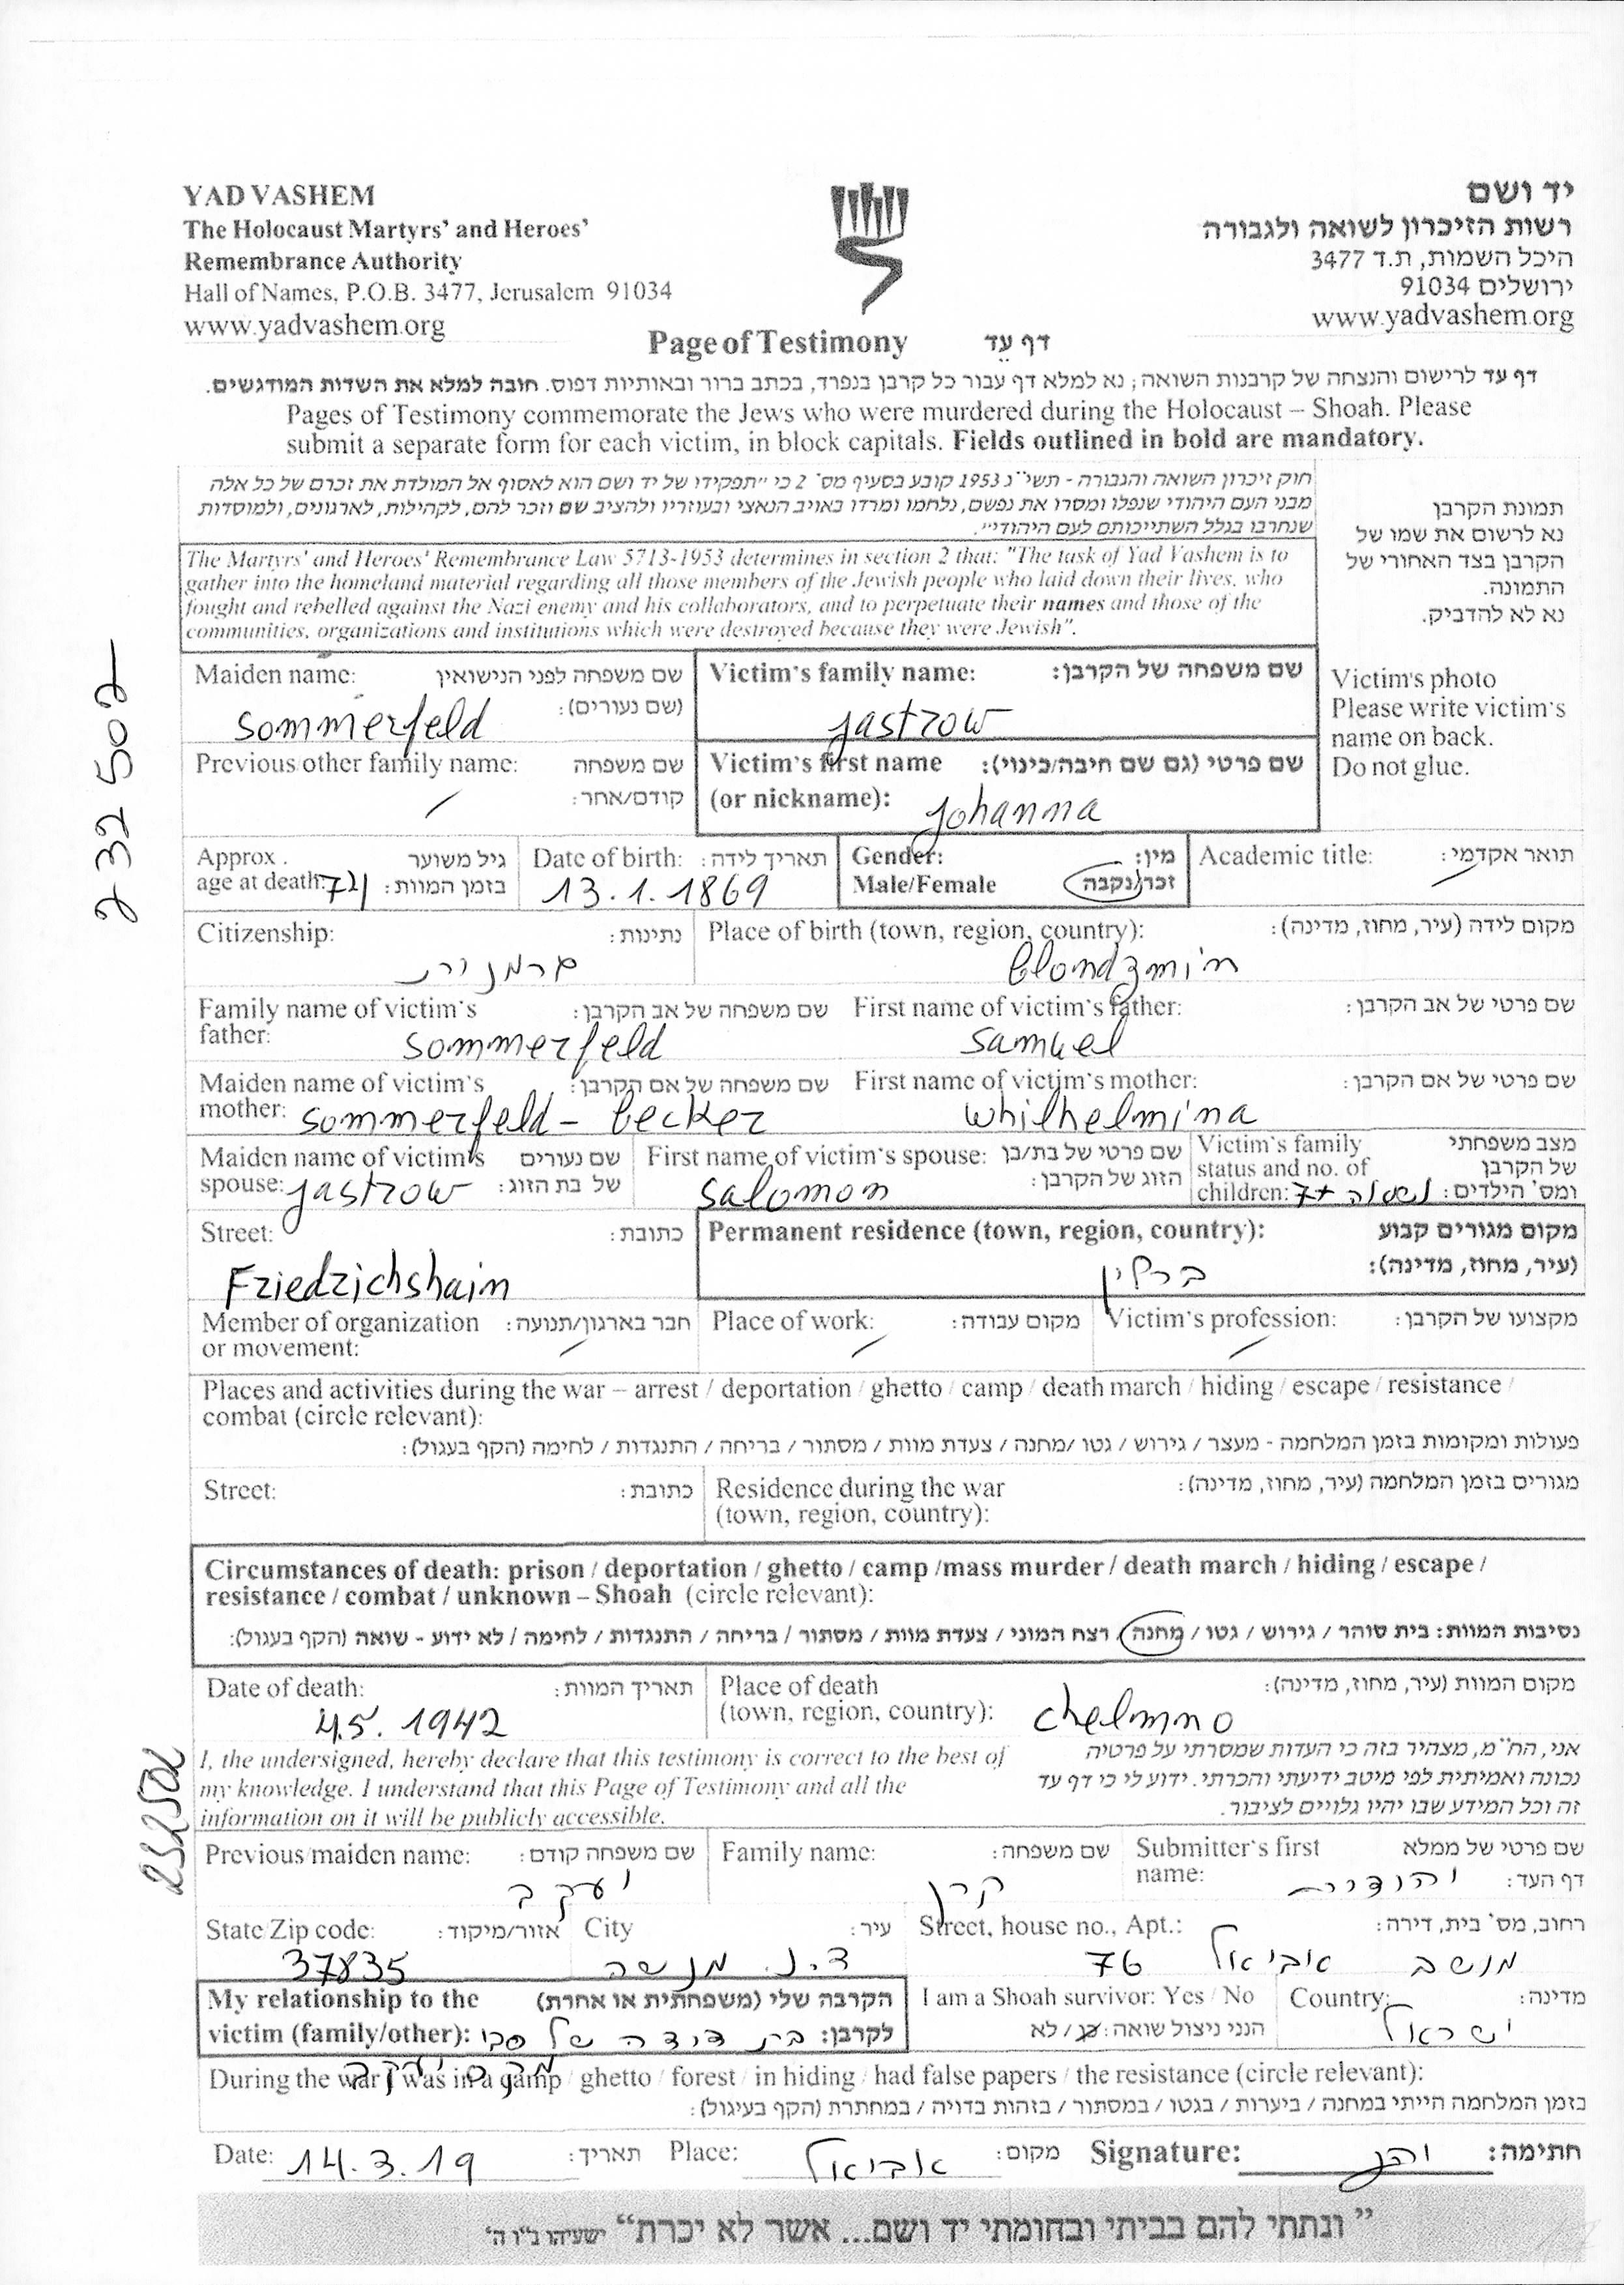 YAD VASHEM
The Holocaust Martyrs' and Heroes'
Remembrance Authority
Hall of Names, P.O.B. 3477, Jerusalem 91034
www.yadvashem.org
יד ושם
רשות הזיכרון לשואה ולגבורה
היכל השמות, ת.ד 3477
ירושלים 91034
www.yadvashem.org
Page of Testimony דף עד
דף עד לרישום והנצחה של קרבנות השואה; נא למלא דף עבור כל קרבן בנפרד, בכתב ברור ובאותיות דפוס. חובה למלא את השדות המודגשים.
Pages of Testimony commemorate the Jews who were murdered during the Holocaust – Shoah. Please
submit a separate form for each victim, in block capitals. Fields outlined in bold are mandatory.
חוק זיכרון השואה והגבורה - תשי"ג 1953 קובע בסעיף מס' 2 כי "תפקידו של יד ושם הוא לאסוף אל המולדת את זכרם של כל אלה
מבני העם היהודי שנפלו ומסרו את נפשם, נלחמו ומרדו באויב הנאצי ובעוזריו ולהציב שם וזכר להם, לקהילות, לארגונים, ולמוסדות
שנחרבו בגלל השתייכותם לעם היהודי".
The Martyrs' and Heroes' Remembrance Law 5713-1953 determines in section 2 that: "The task of Yad Vashem is to
gather into the homeland material regarding all those members of the Jewish people who laid down their lives, who
fought and rebelled against the Nazi enemy and his collaborators, and to perpetuate their names and those of the
communities, organizations and institutions which were destroyed because they were Jewish".
תמונת הקרבן
נא לרשום את שמו של
הקרבן בצד האחורי של
התמונה.
נא לא להדביק.
Victim's photo
Please write victim's
name on back.
Do not glue.
232502
Maiden name: שם משפחה לפני הנישואין
(שם נעורים):
Sommerfeld
Victim's family name: שם משפחה של הקרבן:
Jastrow
Previous/other family name: שם משפחה
קודם/אחר:
/
Victim's first name שם פרטי (גם שם חיבה/כינוי):
(or nickname): Johanna
Approx. גיל משוער
age at death: 72 בזמן המוות:
Date of birth: תאריך לידה:
13.1.1869
Gender: מין:
Male/Female זכר/נקבה
Academic title: תואר אקדמי:
/
Citizenship: נתינות:
גרמניה
Place of birth (town, region, country): מקום לידה (עיר, מחוז, מדינה):
blondzmin
Family name of victim's שם משפחה של אב הקרבן:
father: Sommerfeld
First name of victim's father: שם פרטי של אב הקרבן:
Samuel
Maiden name of victim's שם משפחה של אם הקרבן:
mother: Sommerfeld - becker
First name of victim's mother: שם פרטי של אם הקרבן:
Whilhelmina
Maiden name of victim's שם נעורים
spouse: Jastrow של בת הזוג:
First name of victim's spouse: שם פרטי של בת/בן
הזוג של הקרבן:
Salomon
Victim's family מצב משפחתי
status and no. of של הקרבן
children: נשואה +7 ומס' הילדים:
Street: כתובת:
Friedrichshain
Permanent residence (town, region, country): מקום מגורים קבוע
(עיר, מחוז, מדינה):
ברלין
Member of organization חבר בארגון/תנועה:
or movement: /
Place of work: מקום עבודה:
/
Victim's profession: מקצועו של הקרבן:
/
Places and activities during the war – arrest / deportation / ghetto / camp / death march / hiding / escape / resistance /
combat (circle relevant):
פעולות ומקומות בזמן המלחמה - מעצר / גירוש / גטו /מחנה / צעדת מוות / מסתור / בריחה / התנגדות / לחימה (הקף בעגול):
Street: כתובת:
Residence during the war מגורים בזמן המלחמה (עיר, מחוז, מדינה):
(town, region, country):
Circumstances of death: prison / deportation / ghetto / camp /mass murder / death march / hiding / escape /
resistance / combat / unknown – Shoah (circle relevant):
נסיבות המוות: בית סוהר / גירוש / גטו / מחנה / רצח המוני / צעדת מוות / מסתור / בריחה / התנגדות / לחימה / לא ידוע - שואה (הקף בעגול):
Date of death: תאריך המוות:
4.5. 1942
Place of death מקום המוות (עיר, מחוז, מדינה):
(town, region, country): Chelmno
232502
I, the undersigned, hereby declare that this testimony is correct to the best of
my knowledge. I understand that this Page of Testimony and all the
information on it will be publicly accessible.
אני, הח"מ, מצהיר בזה כי העדות שמסרתי על פרטיה
נכונה ואמיתית לפי מיטב ידיעתי והכרתי. ידוע לי כי דף עד
זה וכל המידע שבו יהיו גלויים לציבור.
Previous/maiden name: שם משפחה קודם:
יעקב
Family name: שם משפחה:
קרן
Submitter's first שם פרטי של ממלא
name: יהודית דף העד:
State/Zip code: אזור/מיקוד:
37835
City עיר:
ד.נ. מנשה
Street, house no., Apt.: רחוב, מס' בית, דירה:
מושב אביאל 76
My relationship to the הקרבה שלי (משפחתית או אחרת)
victim (family/other): בת דודה של סבי לקרבן:
I am a Shoah survivor: Yes / No
הנני ניצול שואה: כן / לא
Country: מדינה:
ישראל
During the war I was in a camp / ghetto / forest / in hiding / had false papers / the resistance (circle relevant):
בזמן המלחמה הייתי במחנה / ביערות / בגטו / במסתור / בזהות בדויה / במחתרת (הקף בעיגול):
Date: 14.3.19 תאריך: Place: אביאל מקום: Signature: חתימה:
"ונתתי להם בביתי ובחומתי יד ושם... אשר לא יכרת" ישעיהו נ"ו ה'